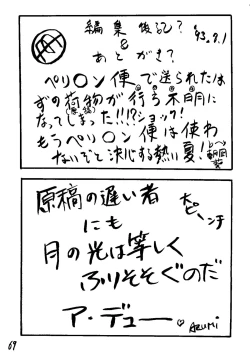 編集後記?
'93.9.1
&
あとがき?
ペリ〇ン便で送られたは
ずの荷物が行ち不明に
なってしまった!!!?ショック!
もうペリ〇ン便は使わ
ないぞと決心する熱い夏!
原稿の遅い者
にも
大ピーンチ
月の光は等しく
ふりそそぐのだ
ア・デュー
Azumi
69